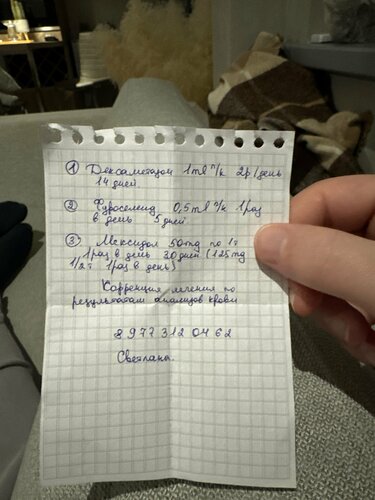 ① Дексаметазон 1ml п/к 2р/день
14 дней
② Фуросемид 0,5ml п/к 1раз
в день 5 дней
③ Мексидол 50mg по 1т
1раз в день 30 дней (125mg
1/2т 1раз в день)
Коррекция лечения по
результатам анализов крови
8 977 312 04 62
Светлана.